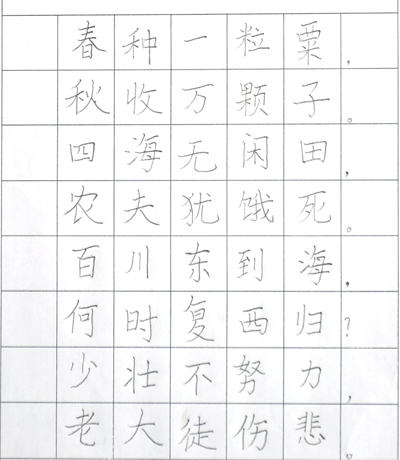 春种一粒粟，
秋收万颗子。
四海无闲田，
农夫犹饿死。
百川东到海，
何时复西归？
少壮不努力，
老大徒伤悲。